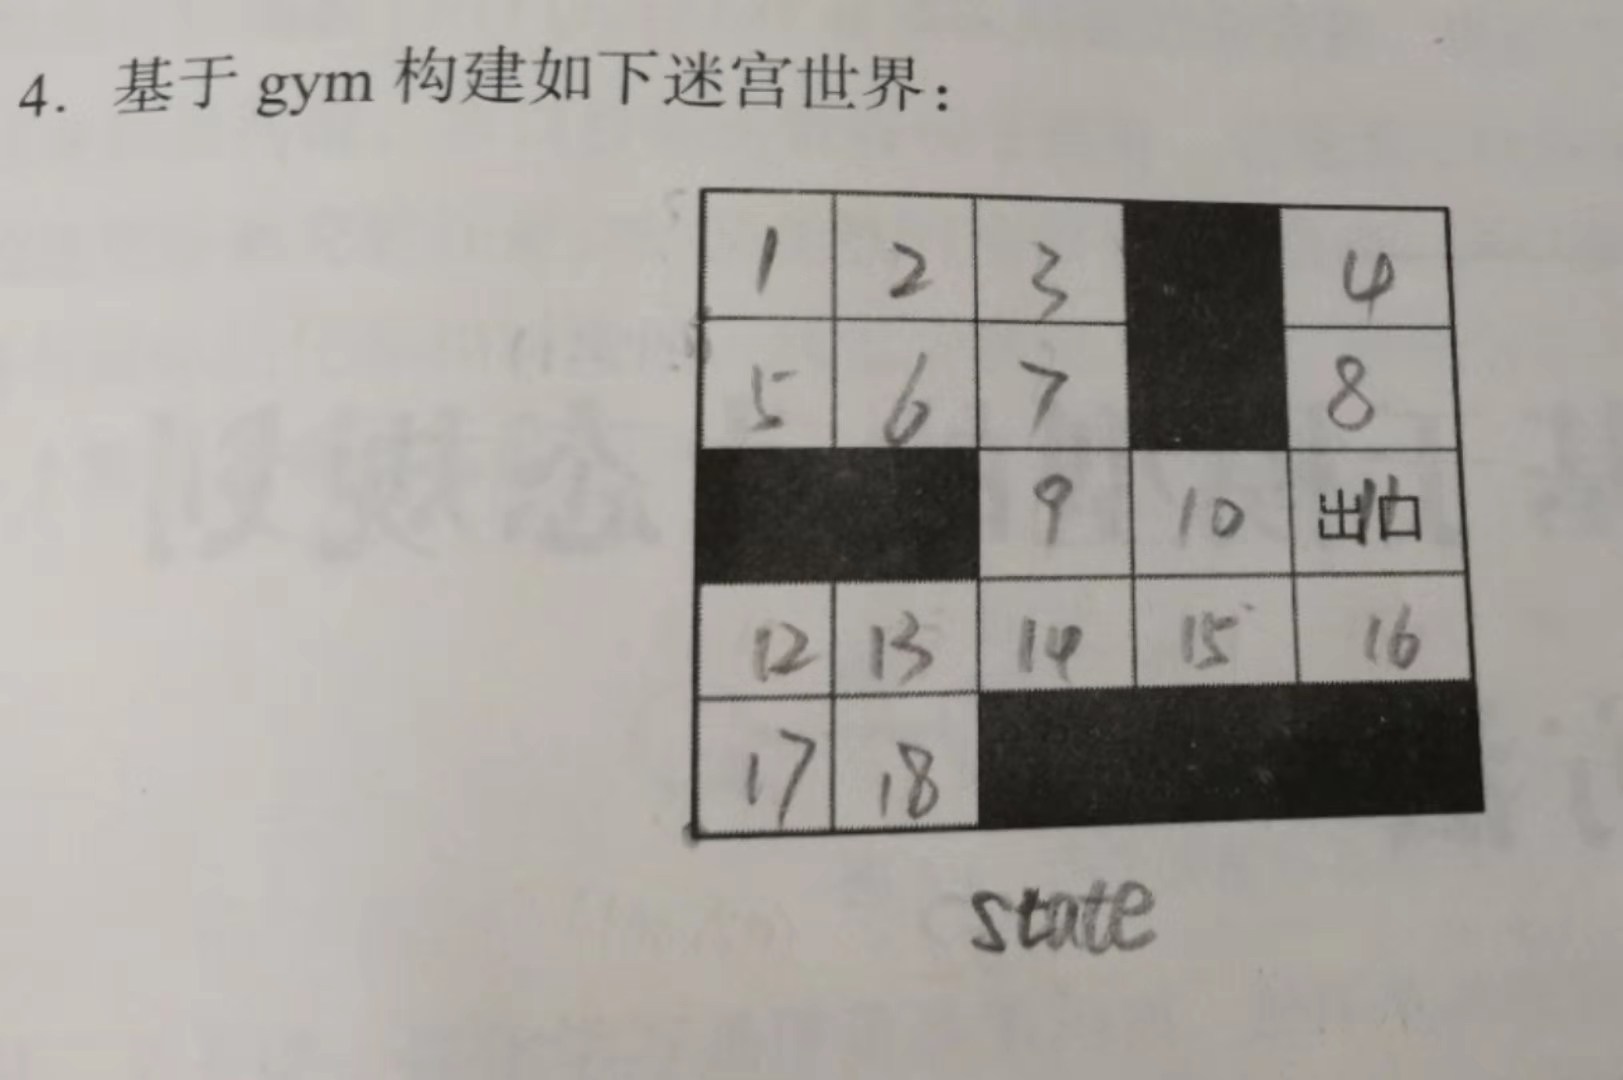 4. 基于 gym 构建如下迷宫世界：
1 2 3 4
5 6 7 8
9 10 出口 11
12 13 14 15 16
17 18
state